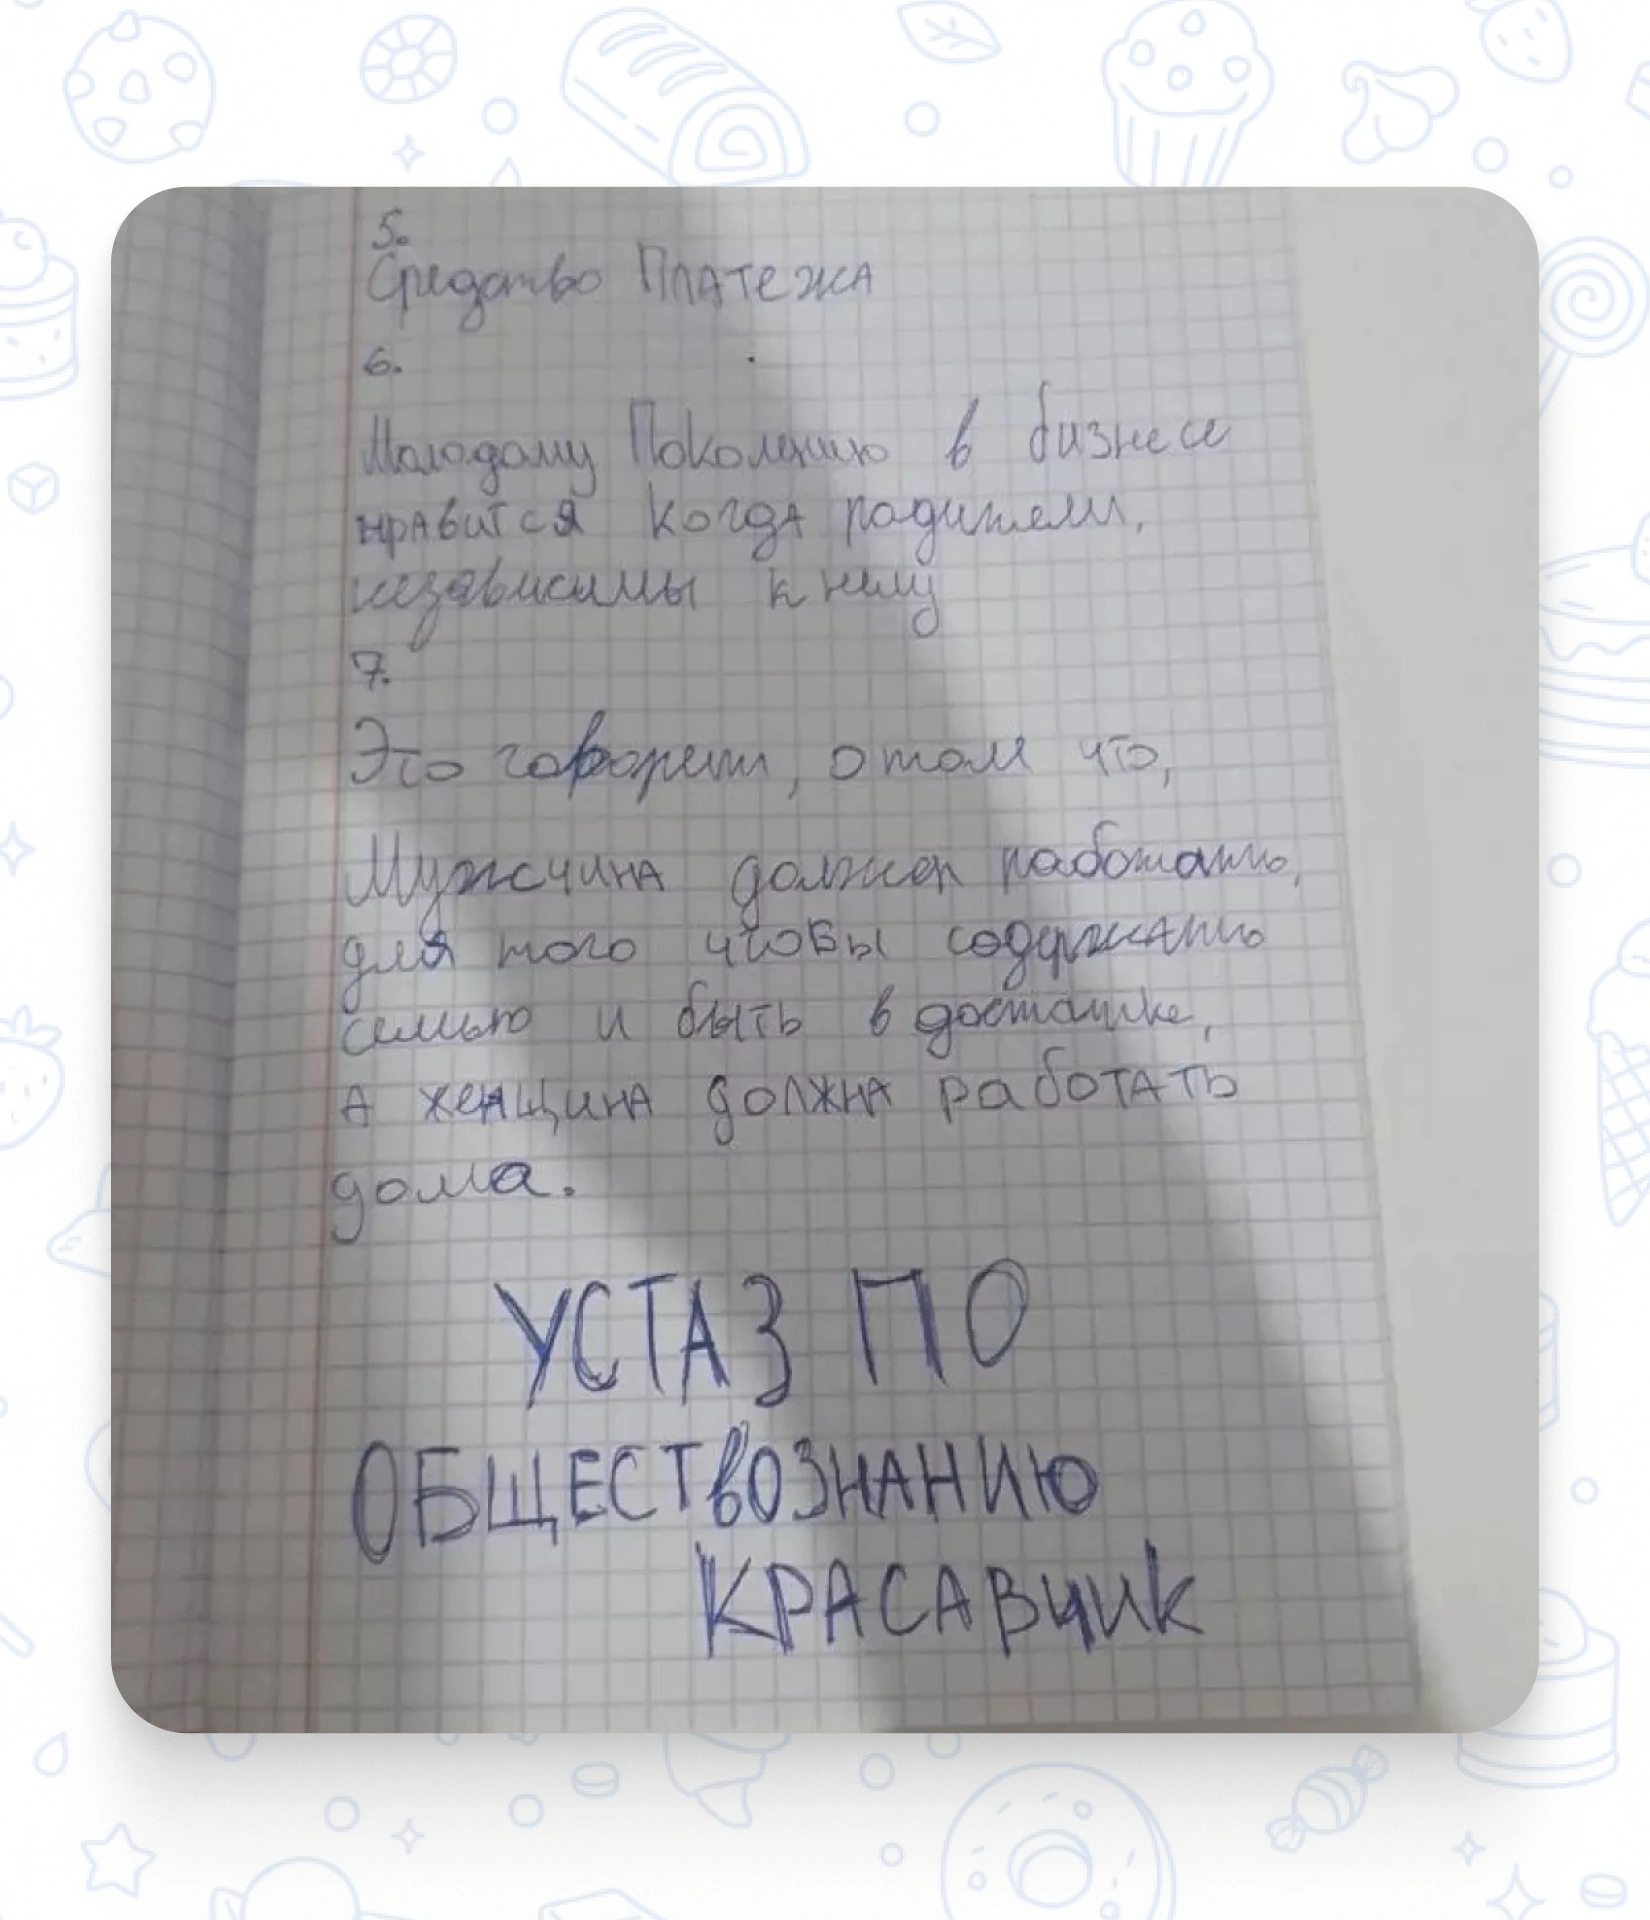 5.
Средство Платежа
6.
Молодому Поколению в бизнесе
нравится когда родители,
независимы к нему
7.
Это говорит, о том что,
Мужчина должен работать,
для того чтобы содержать
семью и быть в достатке,
А женщина должна работать
дома.
УСТАЗ ПО
ОБЩЕСТВОЗНАНИЮ
КРАСАВЧИК